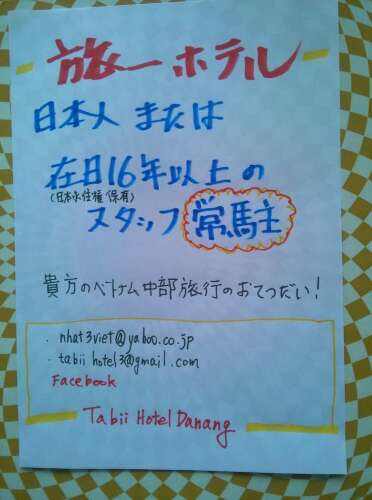 旅一ホテル
日本人 または
在日16年以上の
(日本永住権 保有)
スタッフ 常駐
貴方のベトナム中部旅行のおてつだい!
・nhat3viet@yahoo.co.jp
・tabii hotel3@gmail.com
Facebook
Tabii Hotel Danang